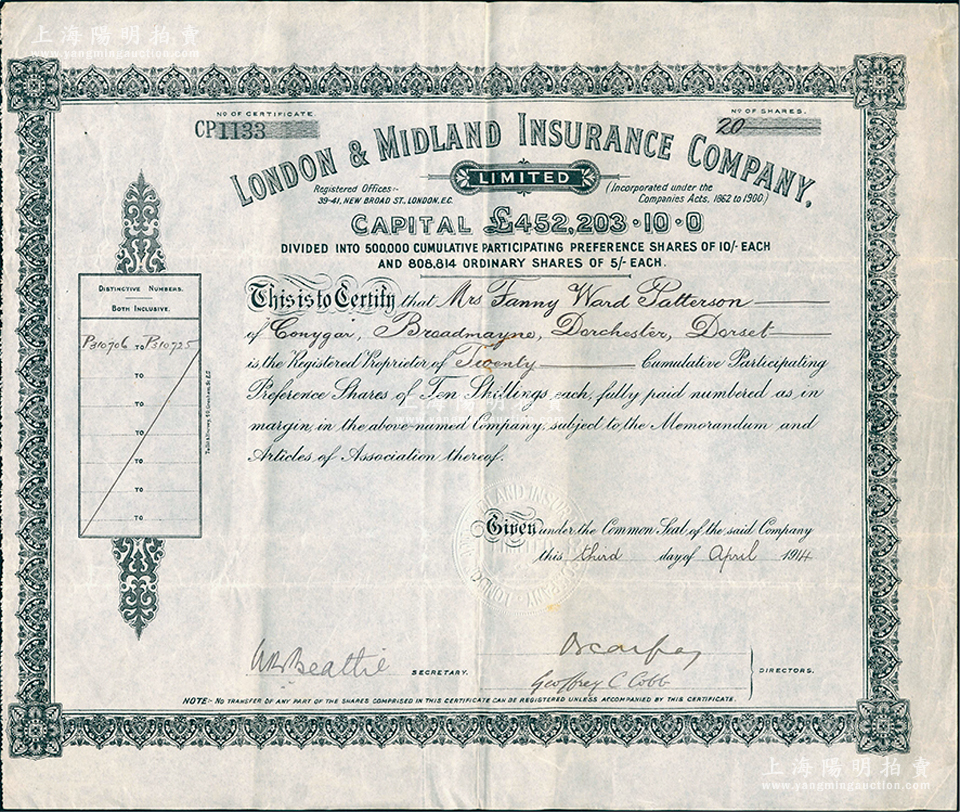 上海陽明拍賣
www.yangmingauction.com
No OF CERTIFICATE.
CP1133
No OF SHARES.
20
LONDON & MIDLAND INSURANCE COMPANY,
LIMITED
Registered Offices:-
39-41, NEW BROAD ST., LONDON, E.C.
(Incorporated under the
Companies Acts, 1862 to 1900)
CAPITAL £452,203·10·0
DIVIDED INTO 500,000 CUMULATIVE PARTICIPATING PREFERENCE SHARES OF 10/- EACH
AND 808,814 ORDINARY SHARES OF 5/- EACH.
DISTINCTIVE NUMBERS.
BOTH INCLUSIVE.
P310706 TO P310725
TO
TO
TO
TO
TO
TO
This is to Certify that Mrs Fanny Ward Patterson
of Conygar, Broadmayne, Dorchester, Dorset
is the Registered Proprietor of Twenty Cumulative Participating
Preference Shares of Ten Shillings each, fully paid numbered as in
margin, in the above-named Company, subject to the Memorandum and
Articles of Association thereof.
上海陽明拍賣
www.yangmingauction.com
Given under the Common Seal of the said Company
this third day of April 1914
W Beattie
SECRETARY.
Geoffrey C. Cobb
DIRECTORS.
NOTE:- NO TRANSFER OF ANY PART OF THE SHARES COMPRISED IN THIS CERTIFICATE CAN BE REGISTERED UNLESS ACCOMPANIED BY THIS CERTIFICATE.
上海陽明拍賣
www.yangmingauction.com